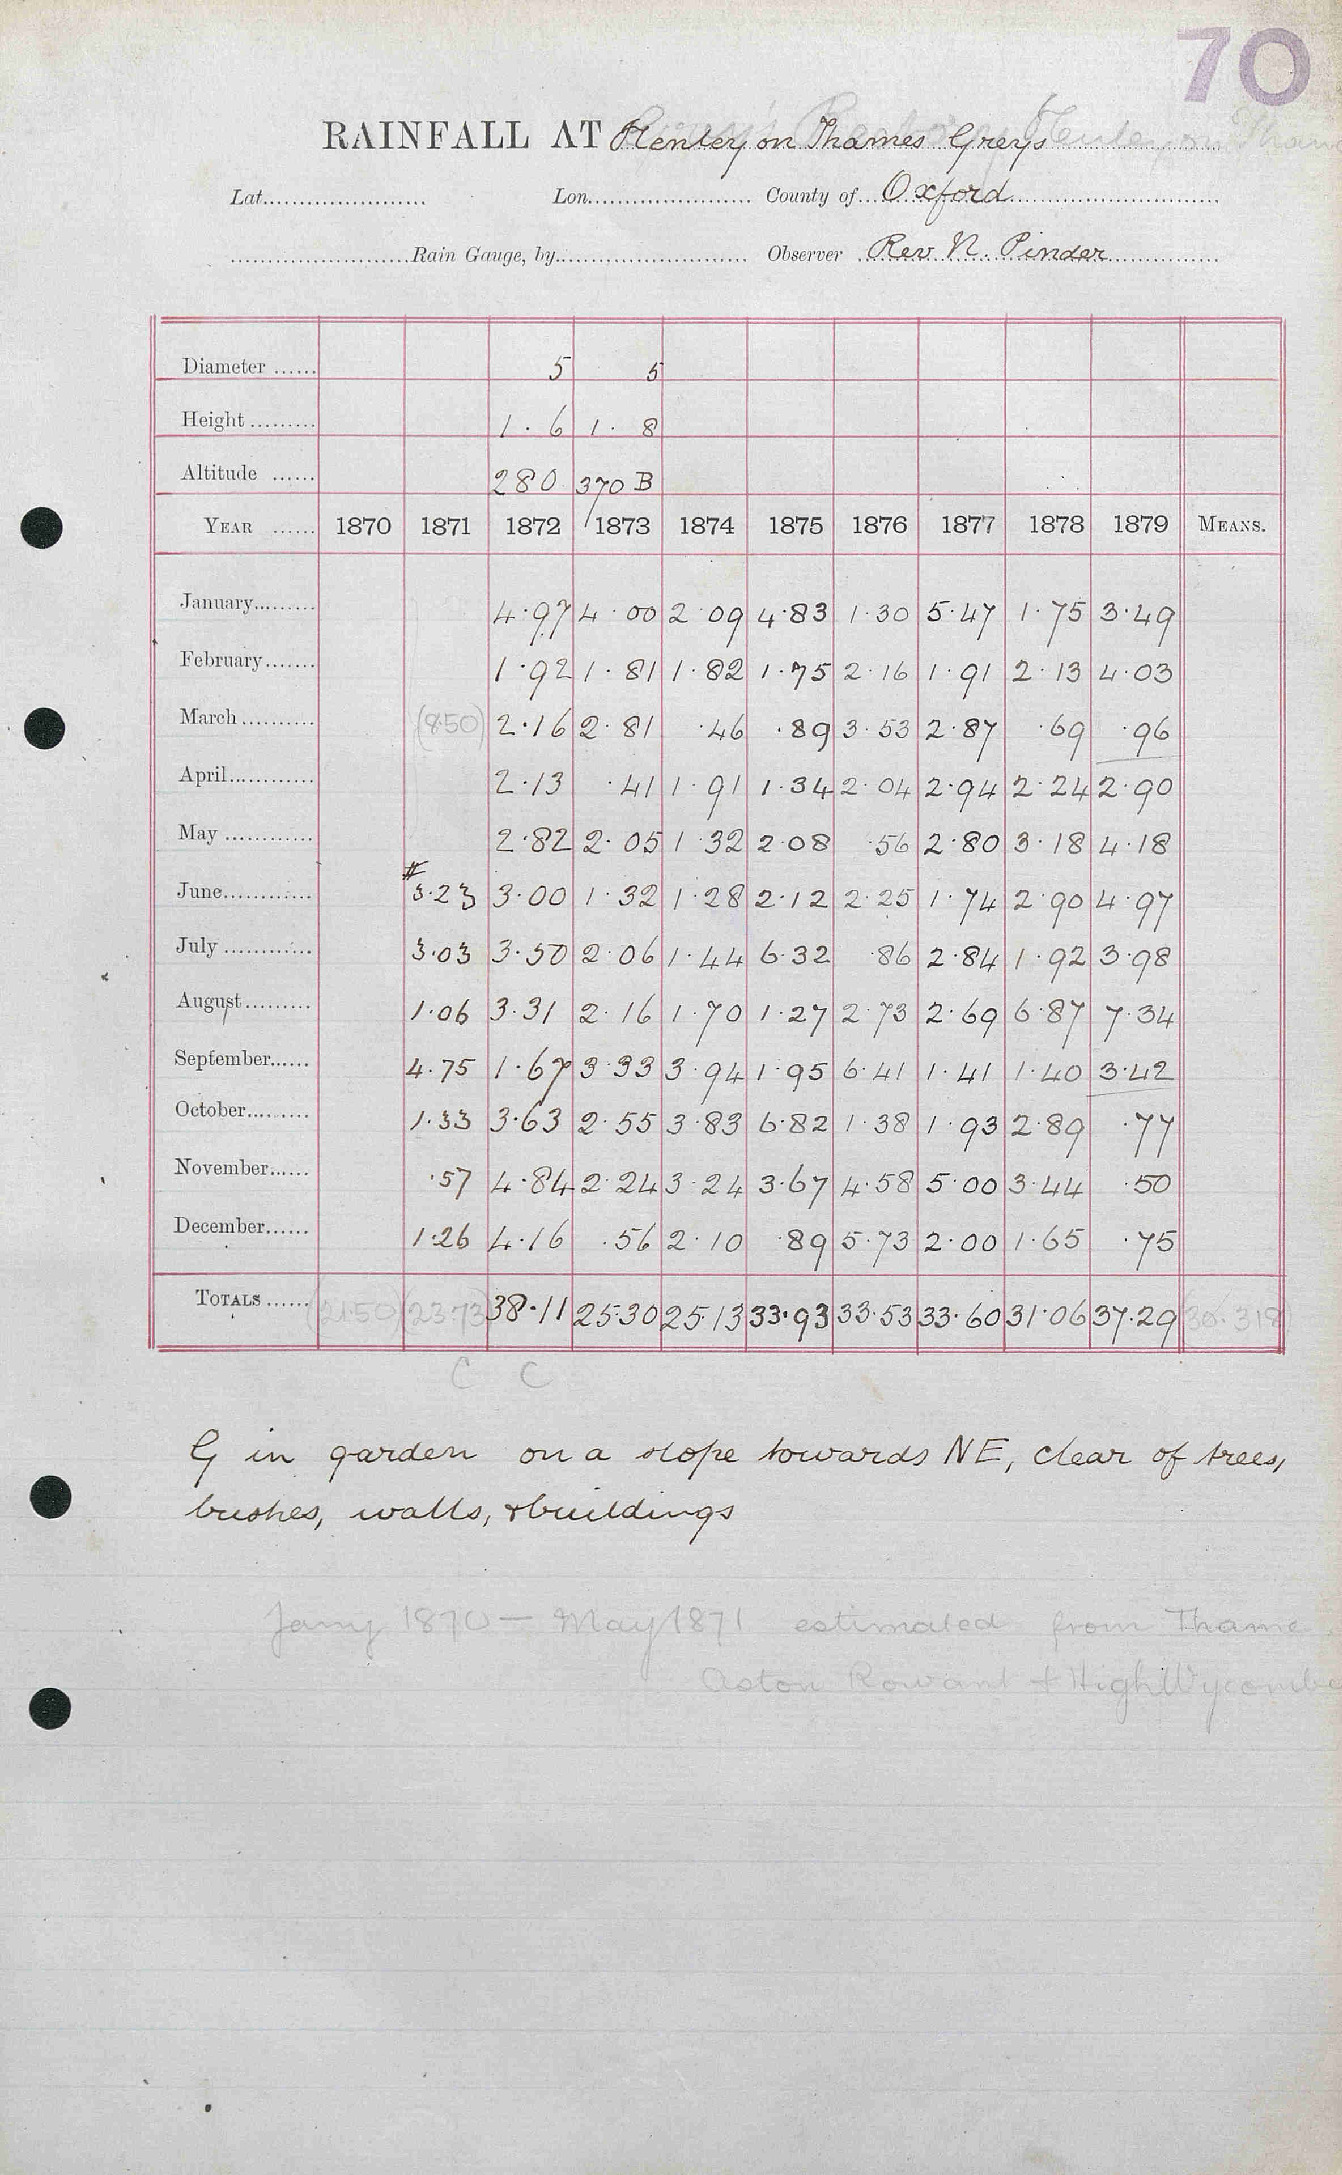 70
RAINFALL AT Henley on Thames Greys
Lat. Lon. County of Oxford
Rain Gauge, by Observer Rev N. Pinder
Diameter 5 5
Height 1.6 1.8
Altitude 280 370 B
YEAR 1870 1871 1872 1873 1874 1875 1876 1877 1878 1879 MEANS.
January 4.97 4.00 2.09 4.83 1.30 5.47 1.75 3.49
February 1.92 1.81 1.82 1.75 2.16 1.91 2.13 4.03
March (8.50) 2.16 2.81 .46 .89 3.53 2.87 .69 .96
April 2.13 .41 1.91 1.34 2.04 2.94 2.24 2.90
May 2.82 2.05 1.32 2.08 .56 2.80 3.18 4.18
#
June 3.23 3.00 1.32 1.28 2.12 2.25 1.74 2.90 4.97
July 3.03 3.50 2.06 1.44 6.32 .86 2.84 1.92 3.98
August 1.06 3.31 2.16 1.70 1.27 2.73 2.69 6.87 7.34
September 4.75 1.67 3.33 3.94 1.95 6.41 1.41 1.40 3.42
October 1.33 3.63 2.55 3.83 6.82 1.38 1.93 2.89 .77
November .57 4.84 2.24 3.24 3.67 4.58 5.00 3.44 .50
December 1.26 4.16 .56 2.10 .89 5.73 2.00 1.65 .75
TOTALS (21.50) (23.73) 38.11 25.30 25.13 33.93 33.53 33.60 31.06 37.29 (30.318)
C C
G in garden on a slope towards NE, clear of trees,
bushes, walls, & buildings
Jany 1870 — May 1871 estimated from Thame
Aston Rowant & High Wycombe